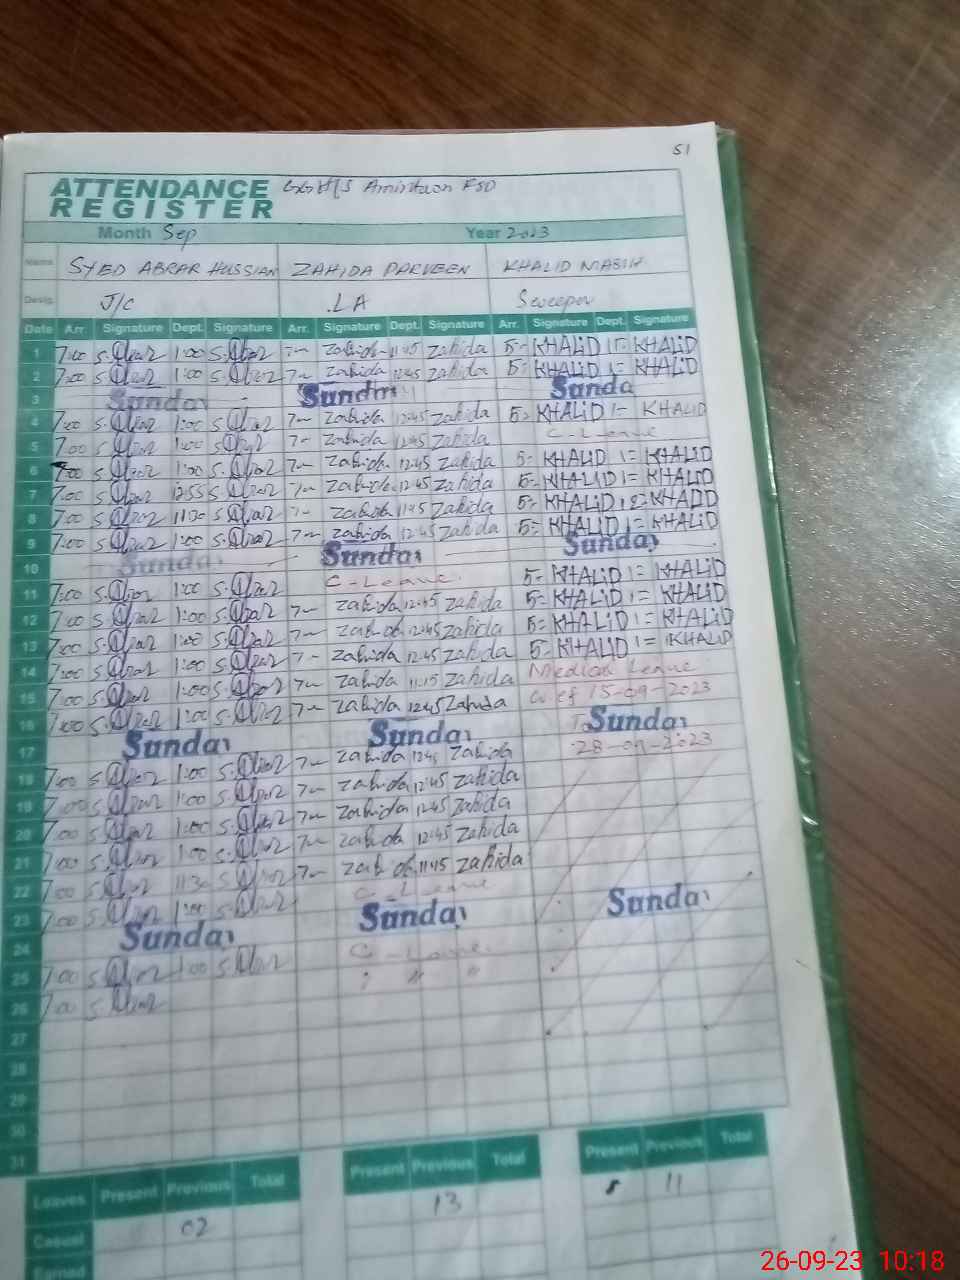 51
ATTENDANCE REGISTER GGHS Amintown FSD
Month Sep Year 2023
Name SYED ABRAR HUSSIAN ZAHIDA PARVEEN KHALID MASIH
Desig. J/C LA Sweeper
Date Arr. Signature Dept. Signature Arr. Signature Dept. Signature Arr. Signature Dept. Signature
1 7:00 1:00 Zahida 11:45 Zahida 5= KHALID 1= KHALID
2 7:00 1:00 Zahida 12:45 Zahida 5= KHALID 1= KHALID
3 Sunday Sunday Sunda
4 7:00 1:00 Zahida 12:45 Zahida 5= KHALID 1= KHALID
5 7:00 1:00 Zahida 12:45 Zahida C-Leave
6 7:00 1:00 Zahida 12:45 Zahida 5= KHALID 1= KHALID
7 7:00 12:55 Zahida 12:45 Zahida 5= KHALID 1= KHALID
8 7:00 11:30 Zahida 11:45 Zahida 5= KHALID KHALID
9 7:00 1:00 Zahida 12:45 Zahida 5= KHALID 1= KHALID
10 Sunday Sunday Sunday
11 7:00 1:00 C-Leave 5= KHALID 1= KHALID
12 7:00 1:00 Zahida 12:45 Zahida 5= KHALID 1= KHALID
13 7:00 1:00 Zahida 12:45 Zahida 5= KHALID 1= KHALID
14 7:00 1:00 Zahida 12:45 Zahida 5= KHALID 1= KHALID
15 7:00 1:00 Zahida 11:15 Zahida Medical Leave
16 7:00 1:00 Zahida 12:45 Zahida w.e.f 15-09-2023
17 Sunday Sunday To Sunday
18 7:00 1:00 Zahida 12:45 Zahida 28-09-2023
19 7:00 1:00 Zahida 12:45 Zahida
20 7:00 1:00 Zahida 12:45 Zahida
21 7:00 1:00 Zahida 12:45 Zahida
22 7:00 11:30 Zahida 11:45 Zahida
23 7:00 1:00 C-Leave
24 Sunday Sunday Sunday
25 7:00 1:00 C-Leave
26 7:00 " "
27
28
29
30
31
Leaves Present Previous Total Present Previous Total Present Previous Total
Casual 02 13 11
Earned
26-09-23 10:18